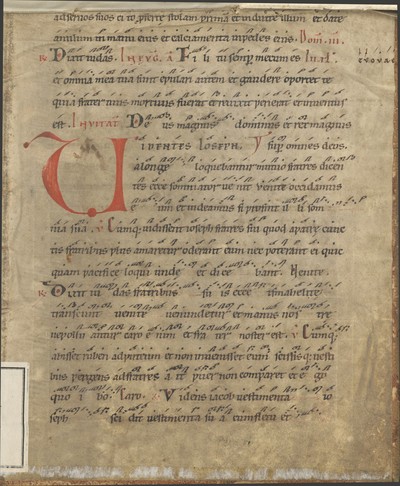 ad seruos suos ci to p̄ferte stolam prima et induite illum et date
anulum in manu eius et calciamenta in pedes eius. Dom. iii.
R Dixit iudas. In euo. a Fi li tu semp mecum es In iii.
et omnia mea tua sunt epulari autem et gaudere oportet te
quia frater tuus mortuus fuerat et reuixit perierat et inuentus
est. Inuitat De us magnus dominus et rex magnus
UIDENTES IOSEPH. V sup omnes deos.
a longe loquebantur mutuo fratres dicen
tes ecce somniator ue nit uenite occidamus
eum et uideamus si prosint il li som
nia sua. V Cumq; uidissent ioseph fratres sui quod a patre cunc
tis fratribus plus amaretur oderant eum nec poterant ei quic
quam pacifice loqui unde et dice bant. Uenite.
R Dixit iu das fratribus su is ecce ismahelite
transeunt uenite uenundetur et manus nos tre
ne polluantur caro enim et fra ter noster est. V Cumq;
abisset ruben ad puteum et non inuenisset eum scissis q; uesti
bus pergens ad fratres a it puer non comparet et e go
quo i bo. Caro. Uidens iacob uestimenta io
seph sci dit uestimenta su a cum fletu et